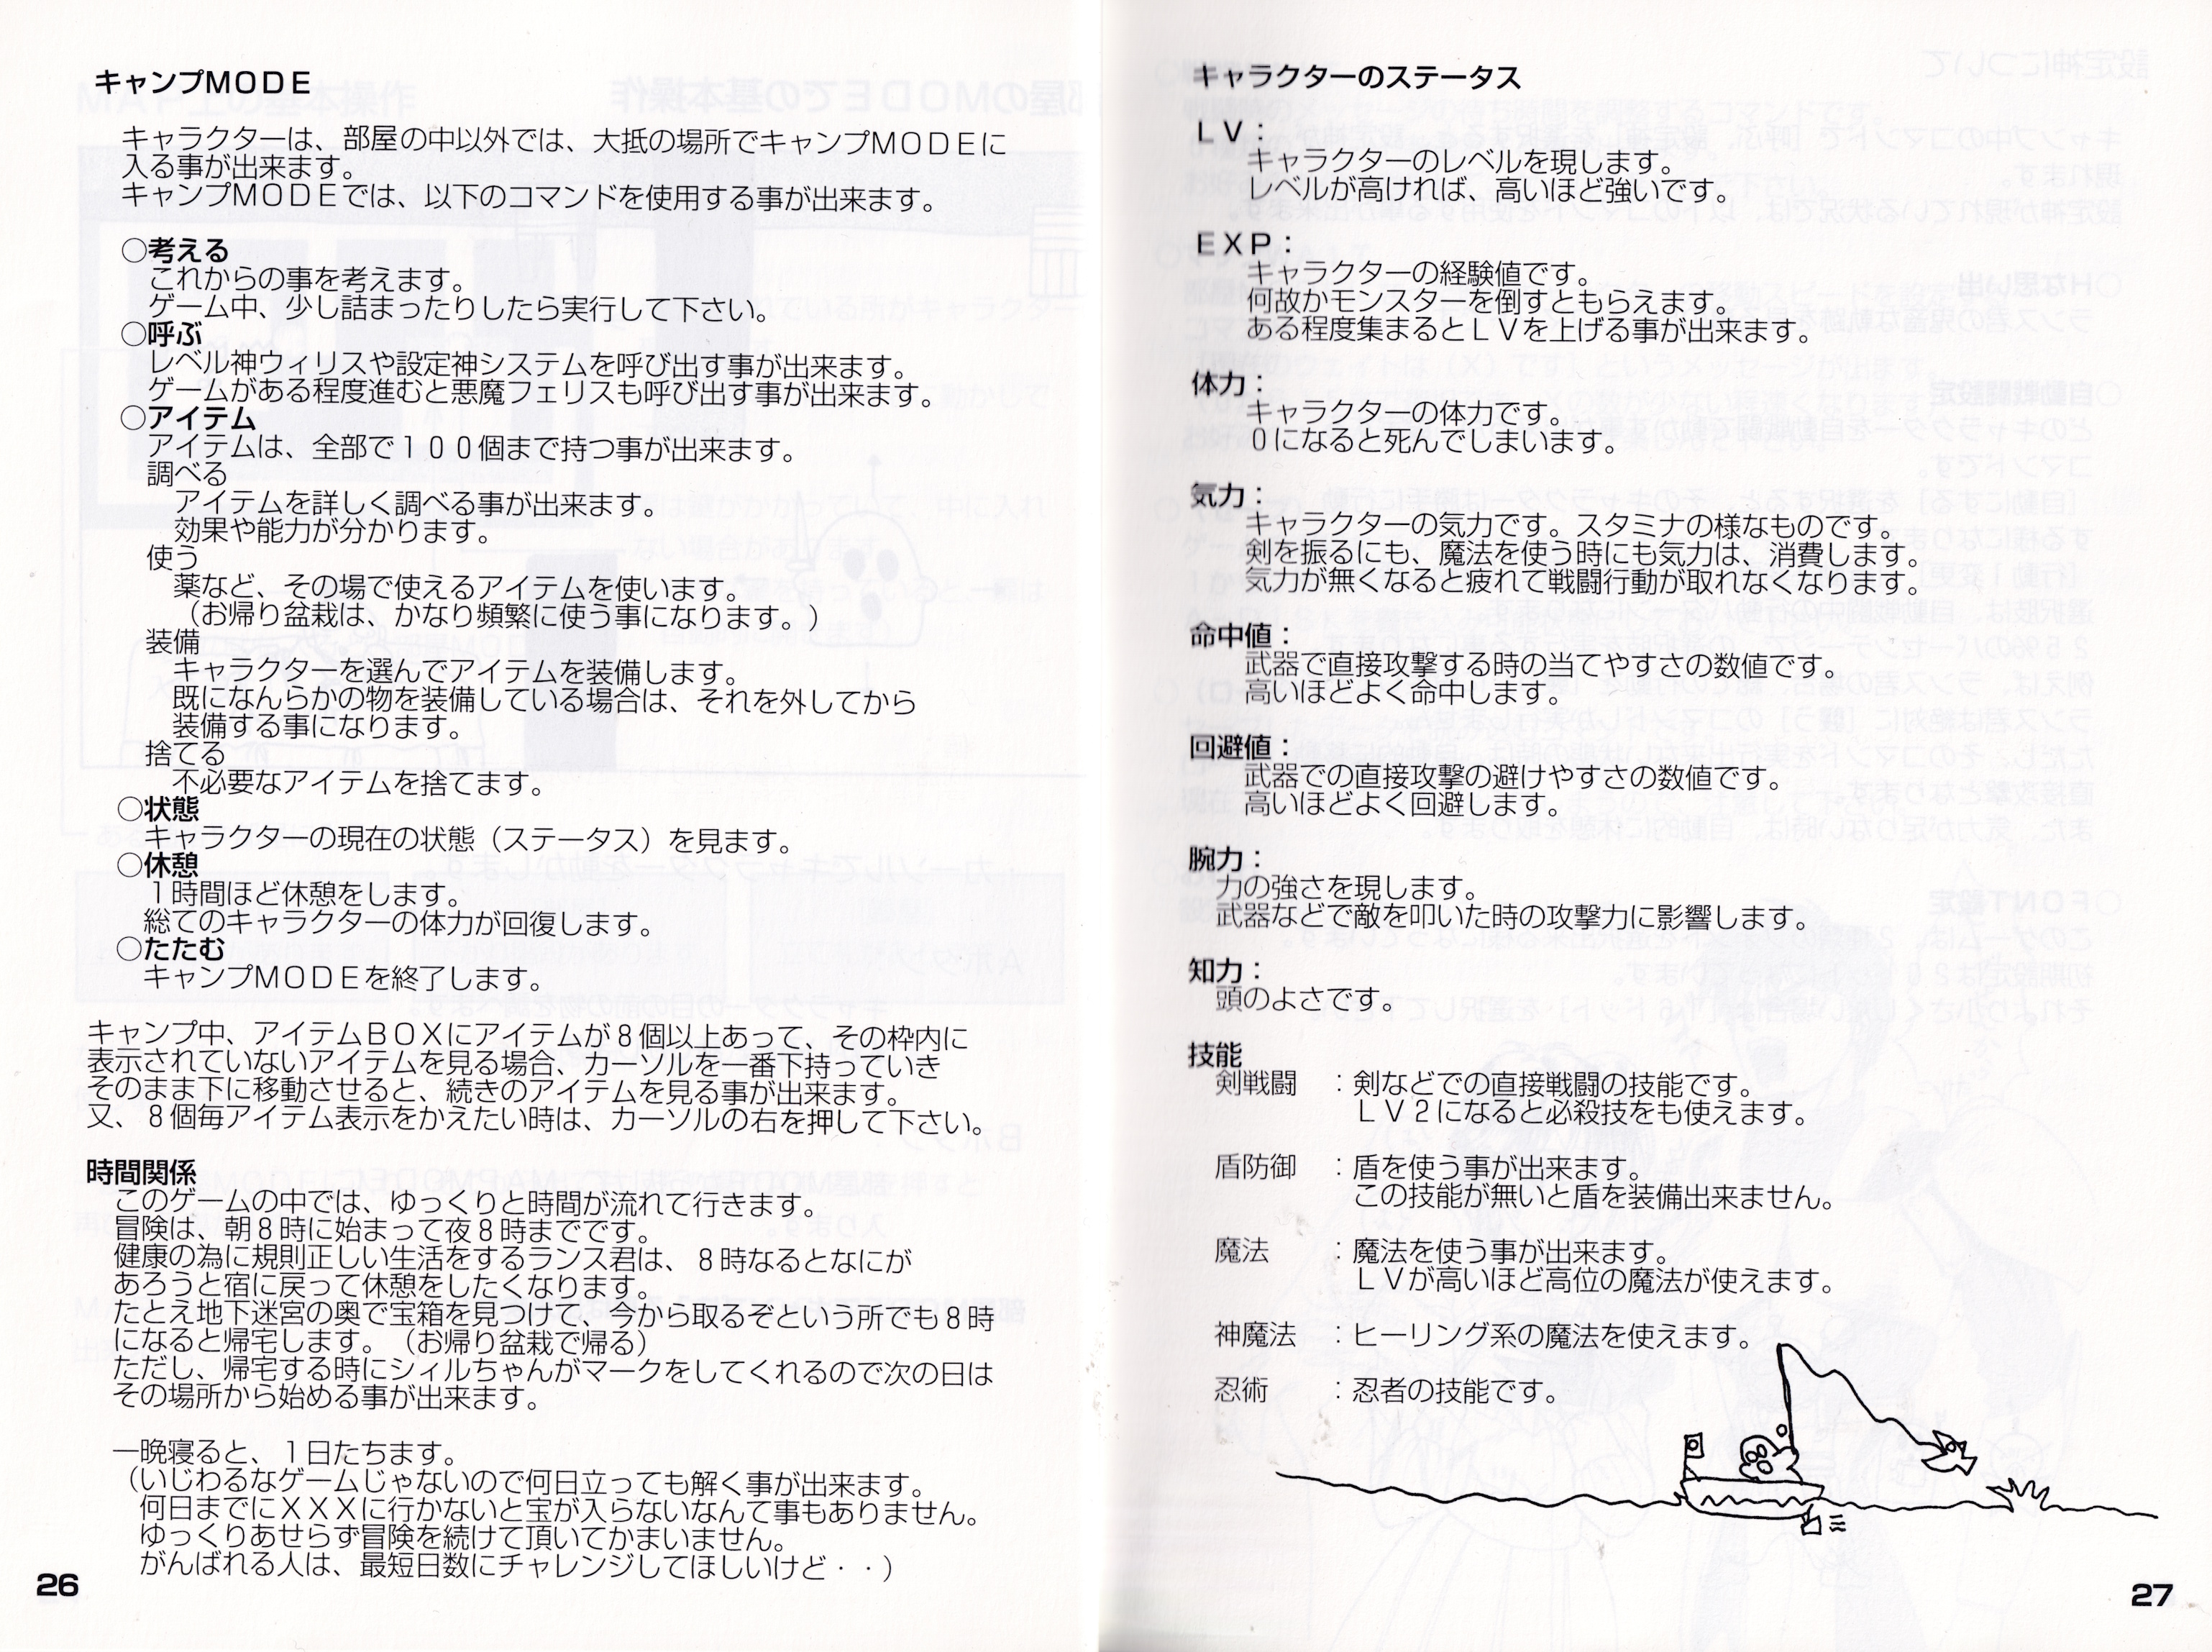 キャンプMODE
キャラクターは、部屋の中以外では、大抵の場所でキャンプMODEに
入る事が出来ます。
キャンプMODEでは、以下のコマンドを使用する事が出来ます。
○考える
これからの事を考えます。
ゲーム中、少し詰まったりしたら実行して下さい。
○呼ぶ
レベル神ウィリスや設定神システムを呼び出す事が出来ます。
ゲームがある程度進むと悪魔フェリスも呼び出す事が出来ます。
○アイテム
アイテムは、全部で１００個まで持つ事が出来ます。
調べる
アイテムを詳しく調べる事が出来ます。
効果や能力が分かります。
使う
薬など、その場で使えるアイテムを使います。
（お帰り盆栽は、かなり頻繁に使う事になります。）
装備
キャラクターを選んでアイテムを装備します。
既になんらかの物を装備している場合は、それを外してから
装備する事になります。
捨てる
不必要なアイテムを捨てます。
○状態
キャラクターの現在の状態（ステータス）を見ます。
○休憩
１時間ほど休憩をします。
総てのキャラクターの体力が回復します。
○たたむ
キャンプMODEを終了します。
キャンプ中、アイテムBOXにアイテムが８個以上あって、その枠内に
表示されていないアイテムを見る場合、カーソルを一番下持っていき
そのまま下に移動させると、続きのアイテムを見る事が出来ます。
又、８個毎アイテム表示をかえたい時は、カーソルの右を押して下さい。
時間関係
このゲームの中では、ゆっくりと時間が流れて行きます。
冒険は、朝８時に始まって夜８時までです。
健康の為に規則正しい生活をするランス君は、８時なるとなにが
あろうと宿に戻って休憩をしたくなります。
たとえ地下迷宮の奥で宝箱を見つけて、今から取るぞという所でも８時
になると帰宅します。（お帰り盆栽で帰る）
ただし、帰宅する時にシィルちゃんがマークをしてくれるので次の日は
その場所から始める事が出来ます。
一晩寝ると、１日たちます。
（いじわるなゲームじゃないので何日立っても解く事が出来ます。
何日までにＸＸＸに行かないと宝が入らないなんて事もありません。
ゆっくりあせらず冒険を続けて頂いてかまいません。
がんばれる人は、最短日数にチャレンジしてほしいけど・・）
26
キャラクターのステータス
ＬＶ：
キャラクターのレベルを現します。
レベルが高ければ、高いほど強いです。
ＥＸＰ：
キャラクターの経験値です。
何故かモンスターを倒すともらえます。
ある程度集まるとＬＶを上げる事が出来ます。
体力：
キャラクターの体力です。
０になると死んでしまいます。
気力：
キャラクターの気力です。スタミナの様なものです。
剣を振るにも、魔法を使う時にも気力は、消費します。
気力が無くなると疲れて戦闘行動が取れなくなります。
命中値：
武器で直接攻撃する時の当てやすさの数値です。
高いほどよく命中します。
回避値：
武器での直接攻撃の避けやすさの数値です。
高いほどよく回避します。
腕力：
力の強さを現します。
武器などで敵を叩いた時の攻撃力に影響します。
知力：
頭のよさです。
技能
剣戦闘　：剣などでの直接戦闘の技能です。
ＬＶ２になると必殺技をも使えます。
盾防御　：盾を使う事が出来ます。
この技能が無いと盾を装備出来ません。
魔法　：魔法を使う事が出来ます。
ＬＶが高いほど高位の魔法が使えます。
神魔法　：ヒーリング系の魔法を使えます。
忍術　：忍者の技能です。
27